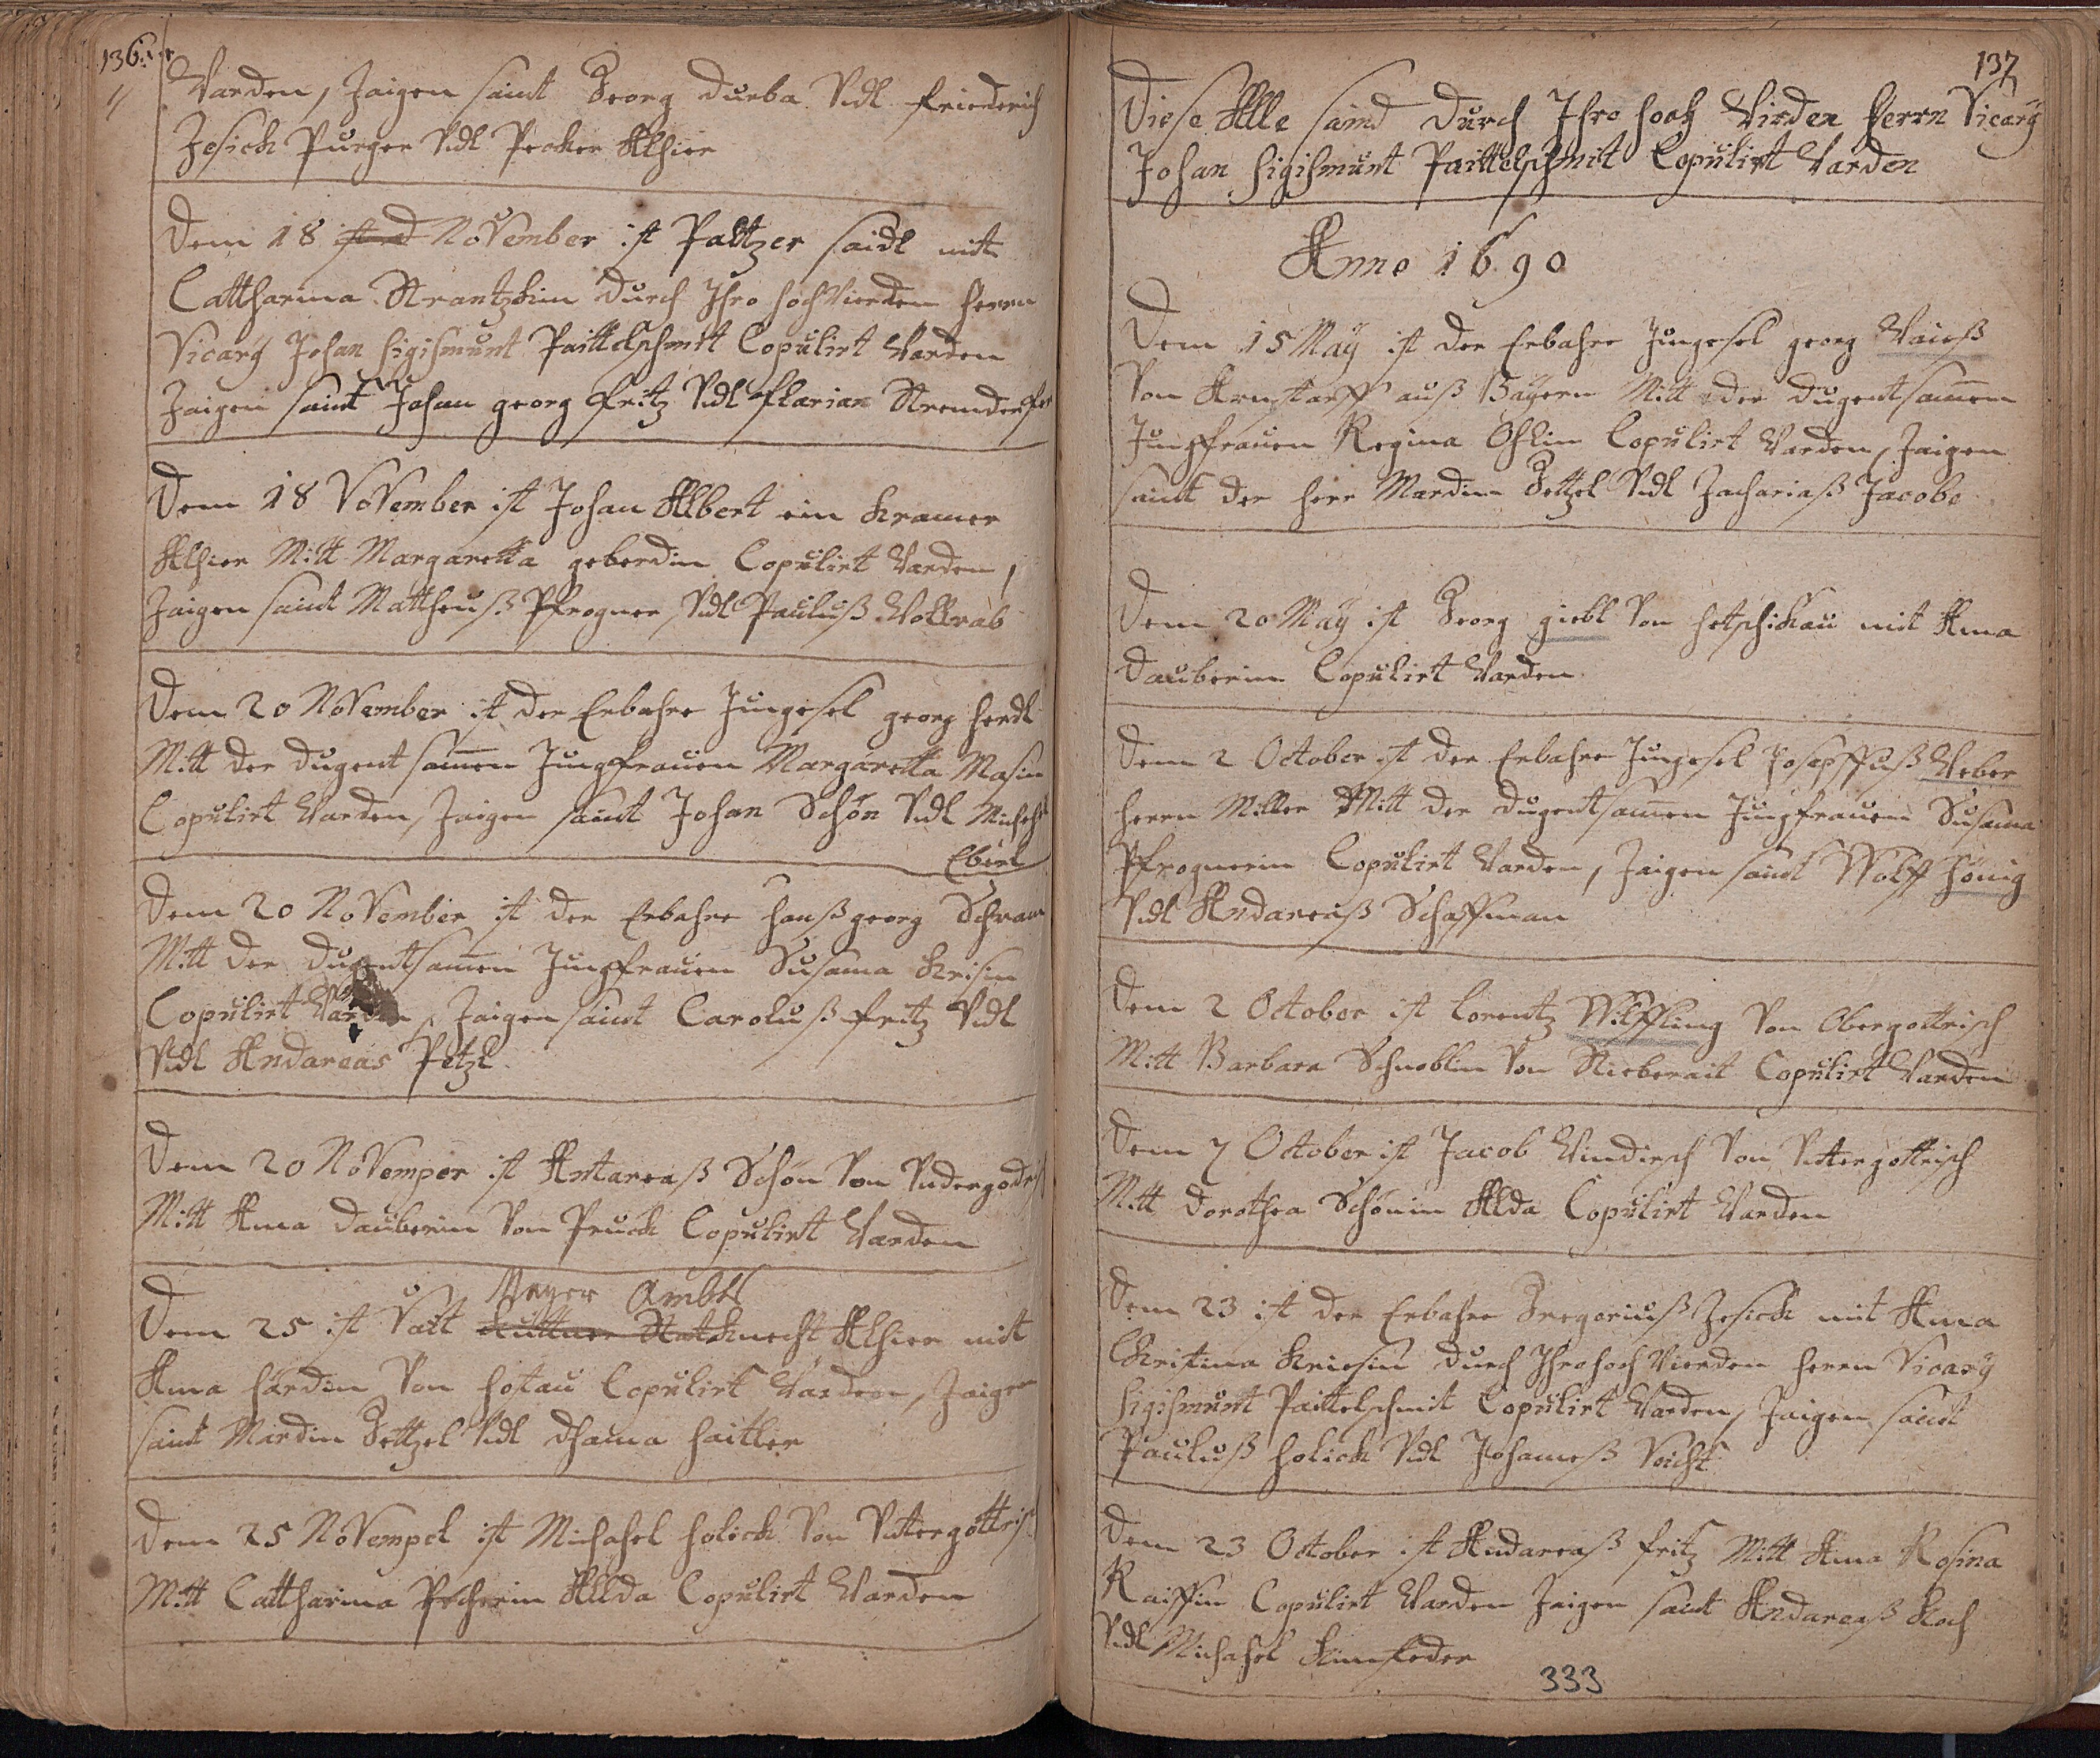 136
Varden, Zaigen saint Georg Durba Vdl friederich
Jesick Purger Vdl Alhier
Dem 18 November ist Paltzer saidl mit
Cattharina Strantzkin Durch Ihro hochVierden herrn
Vicarÿ Johan Sigismunt Paittelschmit Copulirt Varden
Zaigen saint Johan georg fritz Vdl florian
Dem 18 November ist Johan Albert ein Kramer
Alhier Mitt Margaretta geberdin Copulirt Varden,
Zaigen saint Mattheuß Pfrogner Vdl Pauluß Vollrab
Dem 20 November ist der Erbahre Jungesel georg herdl
Mitt der Dugentsamen Jungfrauen Margaretta Masin
Copulirt Varden, Zaigen saint Johan Schön Vdl Michehl
Dem 20 November ist der Erbahre hanß georg
Mitt der Dugentsamen Jungfrauen Susana Krisin
Copulirt Varden, Zaigen saint Caroluß fritz Vdl
Vdl Andareas Petzl
Dem 20 Novemper ist Antareaß Schön Von
Mitt Ana Dauberin Von Pruck Copulirt Varden
Mayer Ambts
Dem 25 ist Vait Knecht Alhier mit
Ana hardin Von hotau Copulirt Varden, Zaigen
saint Mardin Gettzel Vdl haitler
Dem 25 ist Michahel holick Von Vntergottrisch
Mitt Cattharina Allda Copulirt Varden
137
Diese Alle saind Durch Ihro hoch Virden herrn Vicarÿ
Johan Sigismunt Paittelschmit Copulirt Varden
Anno 1690
Dem 15 Maÿ ist der Erbahre Jungesel georg Vaieß
Von auß Baÿern Mitt der Dugentsamen
Jungfrauen Regina Copulirt Varden, Zaigen
saint der herr Mardin Gettzel Vdl Zachariaß Jacobe
Dem 20 Maÿ ist Georg giebl Von hetschikau mit Ana
Dauberin Copulirt Varden
Dem 2 October ist der Erbahre Jungesel Josepffuß Veber
herrn Miller Mitt der Dugentsamen Jungfrauen Susana
Pfrognerin Copulirt Varden, Zaigen saint Wolff hönig
Vdl Andareaß Schaffman
Dem 2 October ist Lorentz Wilffling Von Obergottrisch
Mitt Barbara Schnoblin Von Copulirt Varden
Dem 7 October ist Jacob Vindirsch Von Vntergottrisch
Mitt Dorothea Schönin Allda Copulirt Varden
Dem 23 ist der Erbahre Gregoriuß Jesick mit Ana
Christina Kriesin Durch Ihro hoch Vierden herrn Vicarÿ
Sigismunt Paittelschmit Copulirt Varden, Zaigen saint
Pauluß holick Vdl Johaneß Veicht
Dem 23 October ist Andareaß fritz Mitt Ana Rosina
Raiffin Copulirt Varden Zaigen saint Andareaß Koch
Vdl Michahel
333